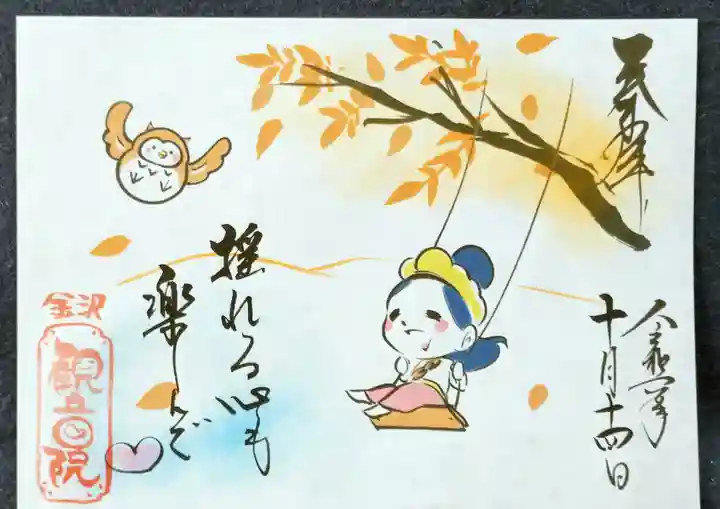 奉拝
令和六年
十月十四日
揺れる心も
楽しんで
金沢
観音院